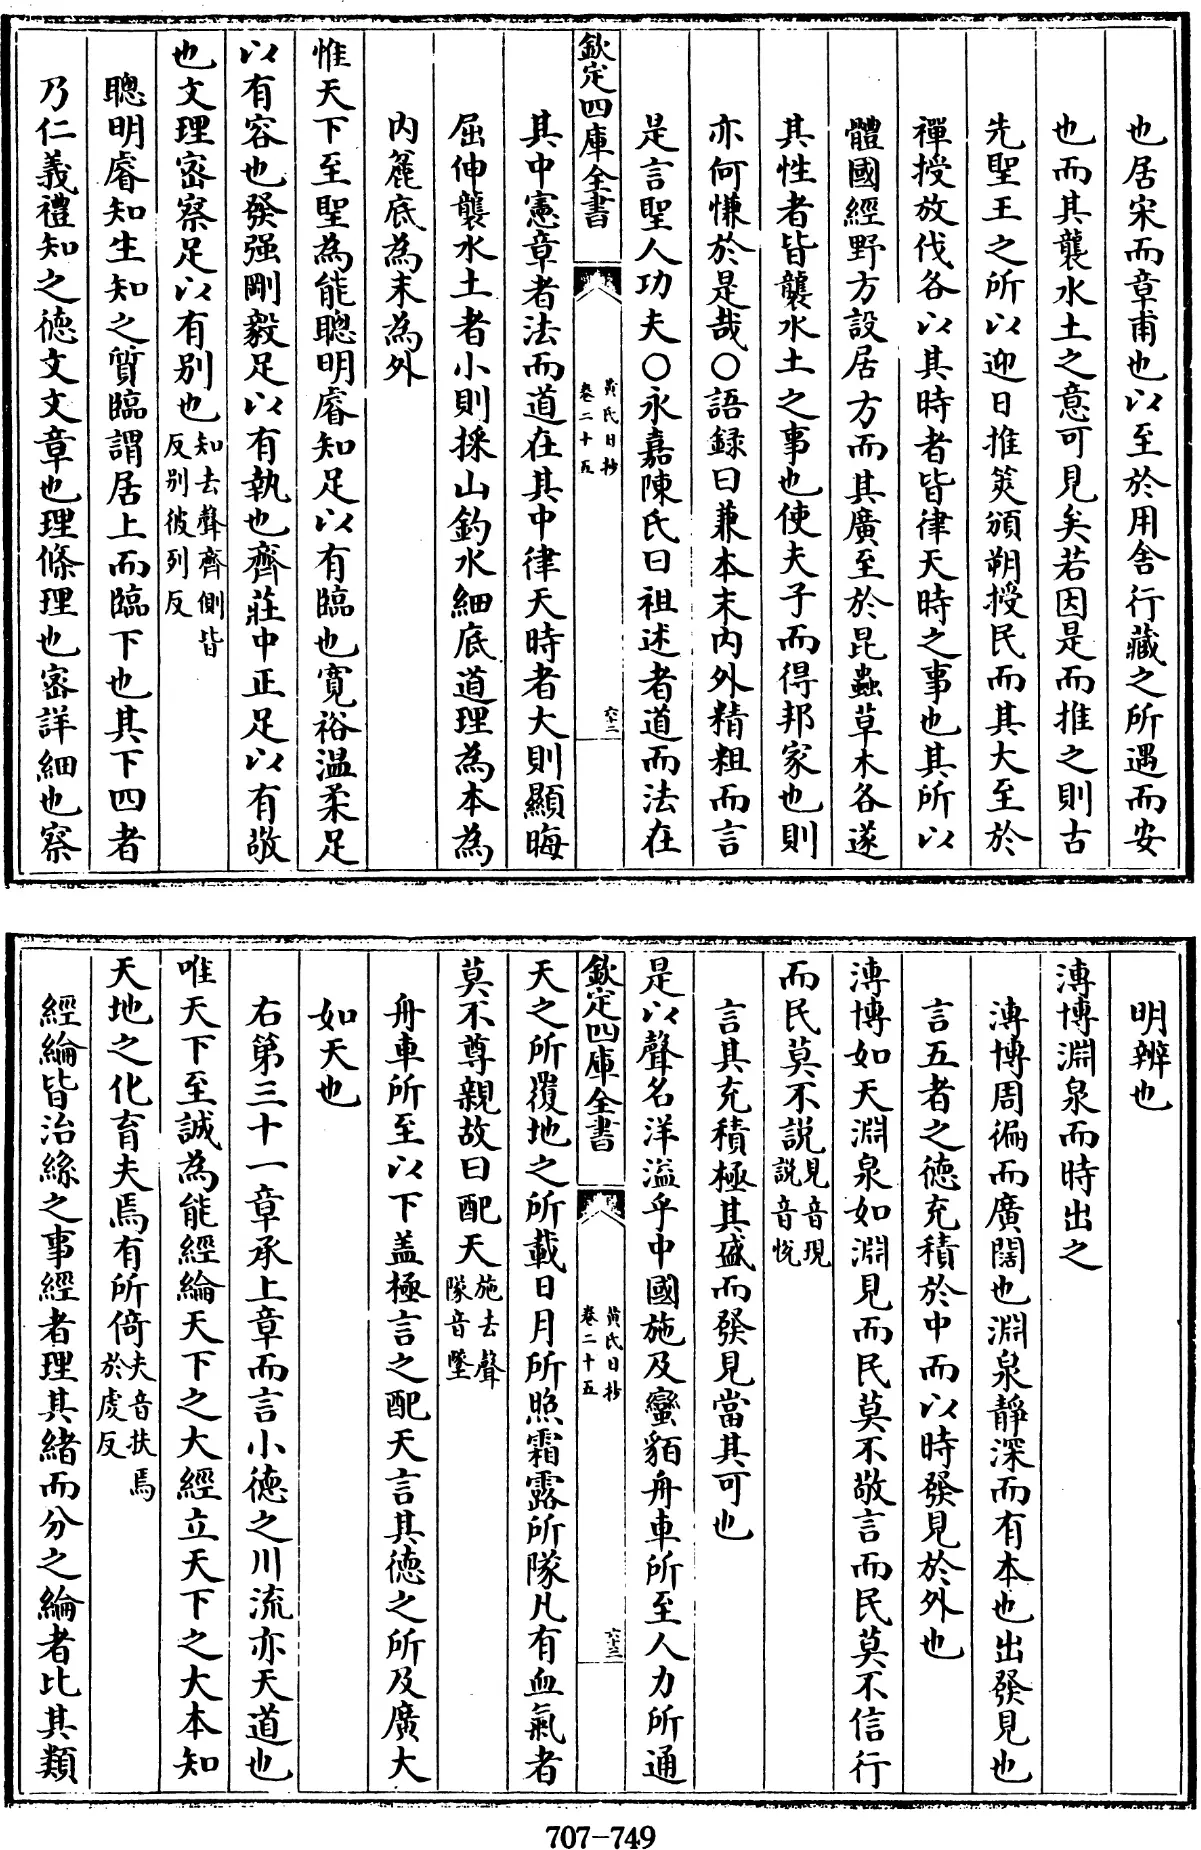 也居宋而章甫也以至於用舎行藏之所遇而安
也而其襲水土之意可見矣若因是而推之則古
先聖王之所以迎日推筴頒朔授民而其大至於
禪授放伐各以其時者皆律天時之事也其所以
體國經野方設居方而其廣至於昆蟲草木各遂
其性者皆襲水土之事也使夫子而得邦家也則
亦何慊於是哉○語録曰兼本末内外精粗而言
是言聖人功夫○永嘉陳氏曰祖述者道而法在
欽定四庫全書
黄氏日抄
卷二十五
六十二
其中憲章者法而道在其中律天時者大則顯晦
屈伸襲水土者小則採山釣水細底道理為本為
内麄底為末為外
惟天下至聖為能聰明睿知足以有臨也寛裕温柔足
以有容也發强剛毅足以有執也齊莊中正足以有敬
也文理密察足以有别也知去聲齊側皆
反别彼列反
聰明睿知生知之質臨謂居上而臨下也其下四者
乃仁義禮知之德文文章也理條理也密詳細也察
明辨也
溥博淵泉而時出之
溥博周徧而廣闊也淵泉靜深而有本也出發見也
言五者之德充積於中而以時發見於外也
溥博如天淵泉如淵見而民莫不敬言而民莫不信行
而民莫不説見音現
説音悦
言其充積極其盛而發見當其可也
是以聲名洋溢乎中國施及蠻貊舟車所至人力所通
欽定四庫全書
黄氏日抄
卷二十五
六十三
天之所覆地之所載日月所照霜露所隊凡有血氣者
莫不尊親故曰配天施去聲
隊音墜
舟車所至以下盖極言之配天言其德之所及廣大
如天也
右第三十一章承上章而言小德之川流亦天道也
唯天下至誠為能經綸天下之大經立天下之大本知
天地之化育夫焉有所倚夫音扶焉
於䖍反
經綸皆治絲之事經者理其緒而分之綸者比其類
707-749